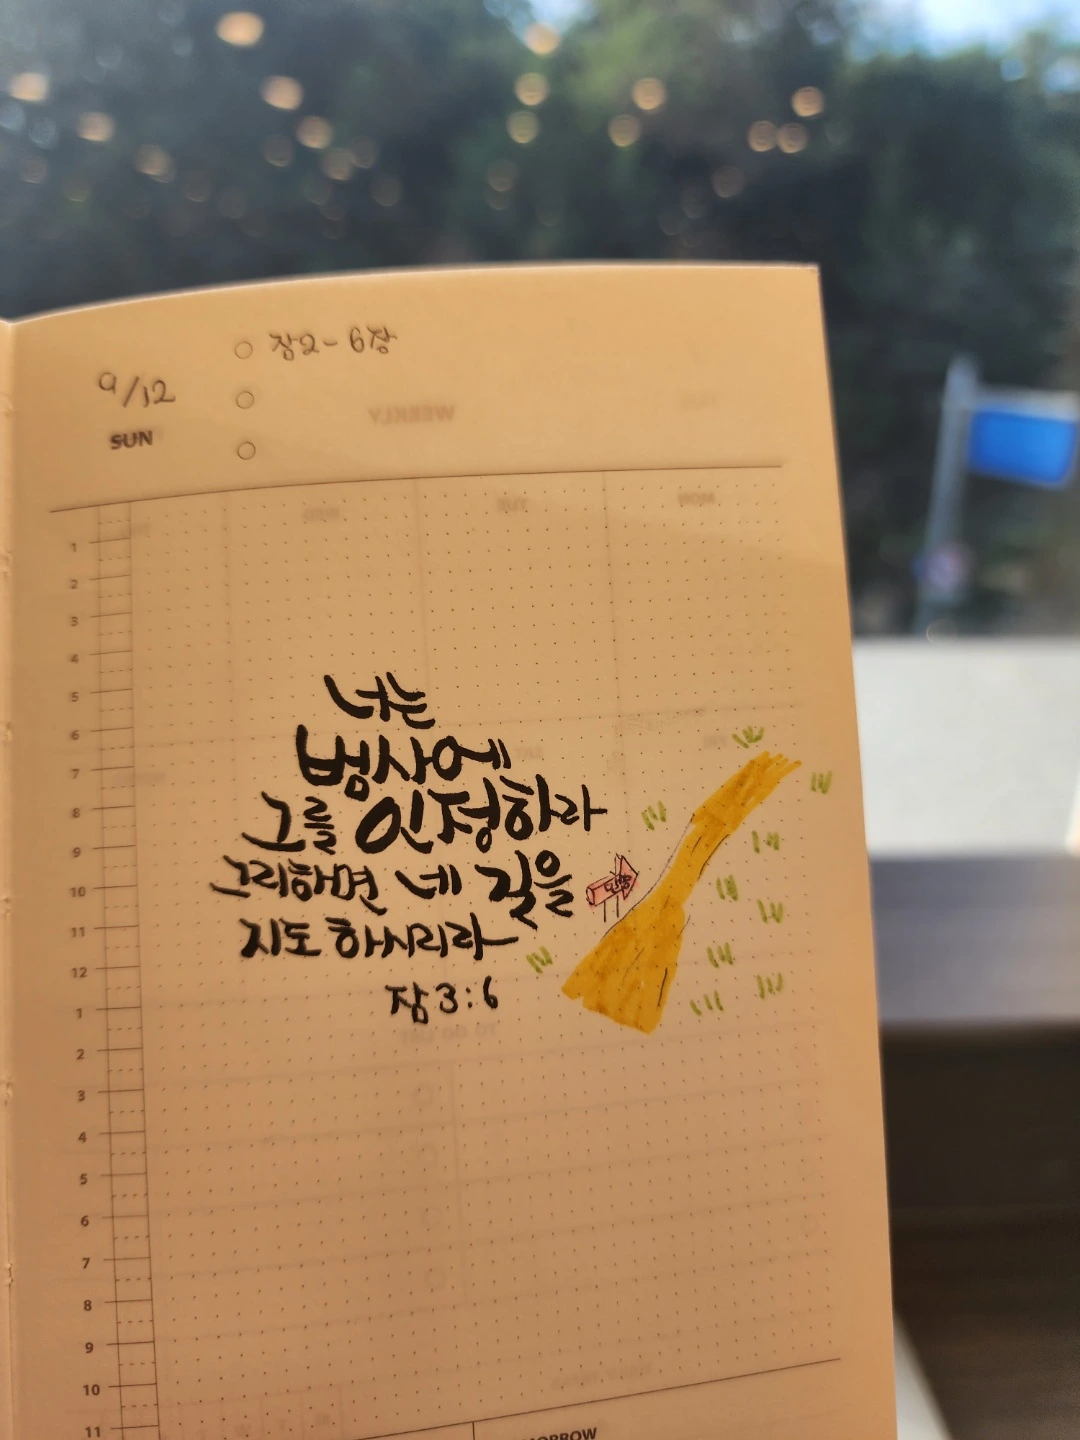 잠2-6장
9/12
SUN
WEEKLY
MON
TUE
1
2
3
4
5
6
7
8
9
10
11
12
1
2
3
4
5
6
7
8
9
10
11
너는
범사에
그를 인정하라
그리하면 네 길을
지도하시리라
잠 3:6
TO DO LIST